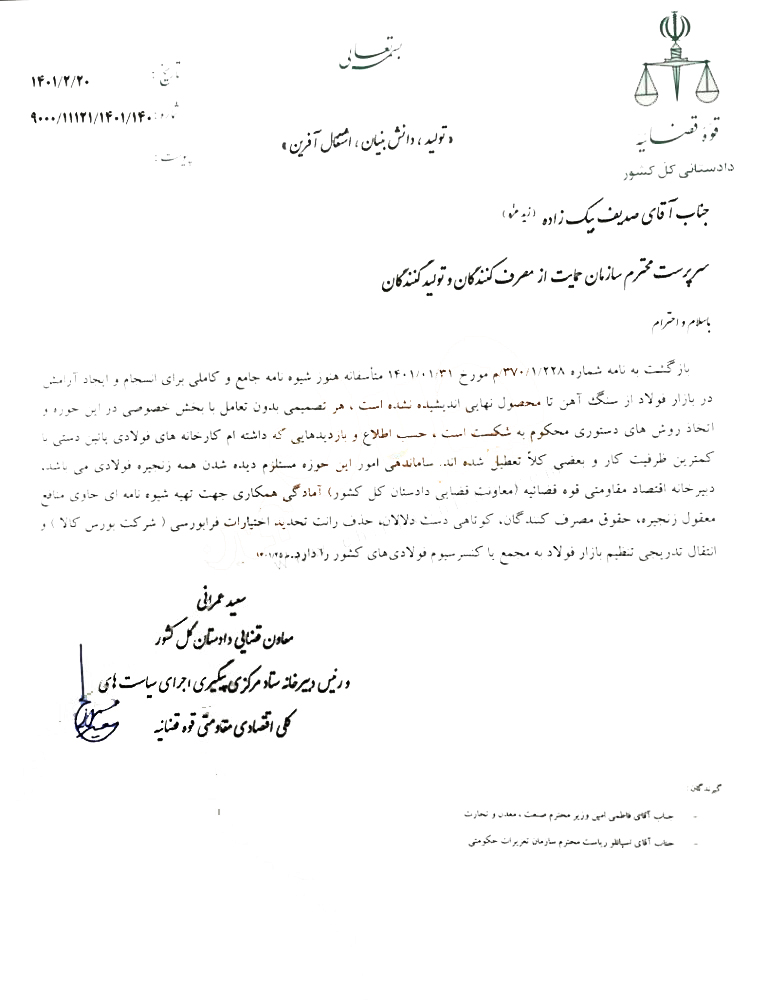 بسمه تعالی
قوه قضائیه
دادستانی کل کشور
تاریخ: ۱۴۰۱/۲/۲۰
شماره: ۹۰۰۰/۱۱۱۲۱/۱۴۰۱/۱۴۰
پیوست:
«تولید، دانش بنیان، اشتغال آفرین»
جناب آقای صدیف بیک زاده (زید عزه)
سرپرست محترم سازمان حمایت از مصرف کنندگان و تولید کنندگان
باسلام و احترام
بازگشت به نامه شماره ۳۷۰/۱/۲۲۸/م مورخ ۱۴۰۱/۰۱/۳۱ متأسفانه هنوز شیوه نامه جامع و کاملی برای انسجام و ایجاد آرامش
در بازار فولاد از سنگ آهن تا محصول نهایی اندیشیده نشده است، هر تصمیمی بدون تعامل با بخش خصوصی در این حوزه و
اتخاذ روش های دستوری محکوم به شکست است، حسب اطلاع و بازدیدهایی که داشته ام کارخانه های فولادی پائین دستی با
کمترین ظرفیت کار و بعضی کلاً تعطیل شده اند. ساماندهی امور این حوزه مستلزم دیده شدن همه زنجیره فولادی می باشد.
دبیرخانه اقتصاد مقاومتی قوه قضائیه (معاونت قضایی دادستان کل کشور) آمادگی همکاری جهت تهیه شیوه نامه ای حاوی منافع
معقول زنجیره، حقوق مصرف کنندگان، کوتاهی دست دلالان، حذف رانت تحدید اختیارات فرابورسی (شرکت بورس کالا) و
انتقال تدریجی تنظیم بازار فولاد به مجمع یا کنسرسیوم فولادی‌های کشور را دارد.
سعید عمرانی
معاون قضایی دادستان کل کشور
و رئیس دبیرخانه ستاد مرکزی پیگیری اجرای سیاست های
کلی اقتصادی مقاومتی قوه قضائیه
گیرندگان:
- جناب آقای فاطمی امین وزیر محترم صنعت، معدن و تجارت
- جناب آقای اسپانلو ریاست محترم سازمان تعزیرات حکومتی